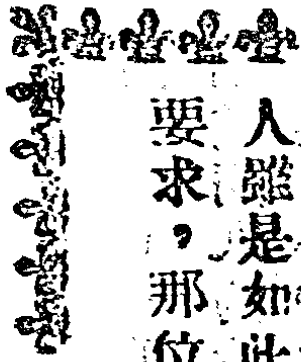 人雖是如此
要求，那位